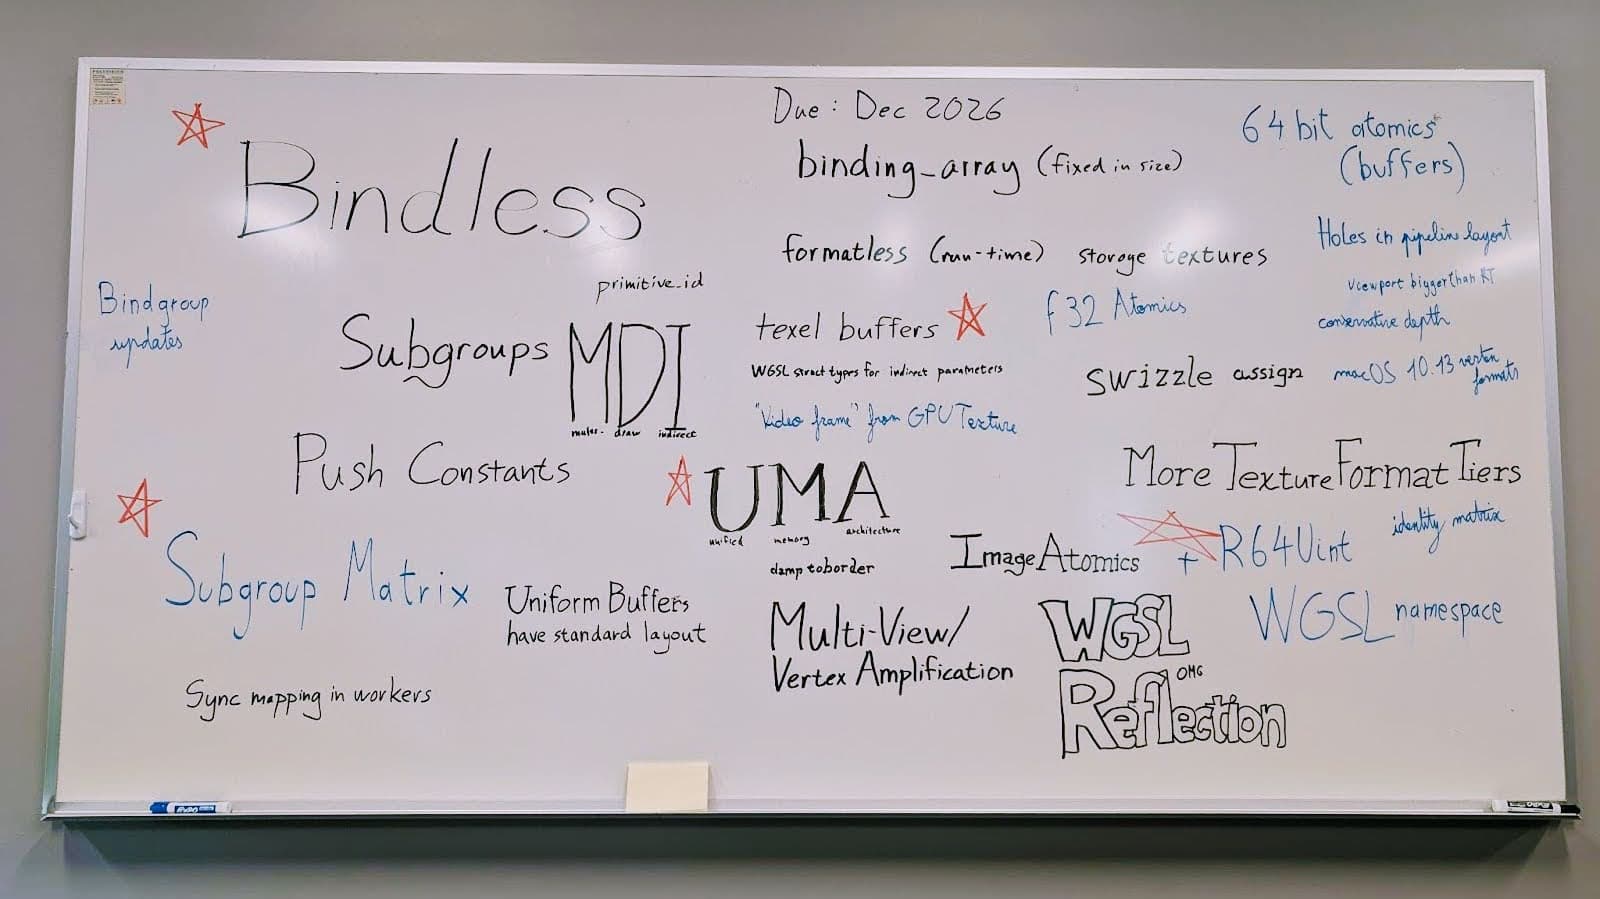 Due: Dec 2026
64 bit atomics
(buffers)
Bindless
binding_array (fixed in size)
formatless (run-time) storage textures
Holes in pipeline layout
viewport bigger than RT
conservative depth
macOS 10.13 vertex
formats
Bindgroup
updates
primitive_id
Subgroups
MDI
multi- draw indirect
texel buffers
f32 Atomics
WGSL struct types for indirect parameters
swizzle assign
"Video frame" from GPUTexture
Push Constants
UMA
unified memory architecture
More Texture Format Tiers
identity matrix
Subgroup Matrix
clamp to border
Image Atomics
+ R64Uint
Uniform Buffers
have standard layout
Multi-View/
Vertex Amplification
WGSL
OMG
Reflection
WGSL namespace
Sync mapping in workers
EXPO
EXPO